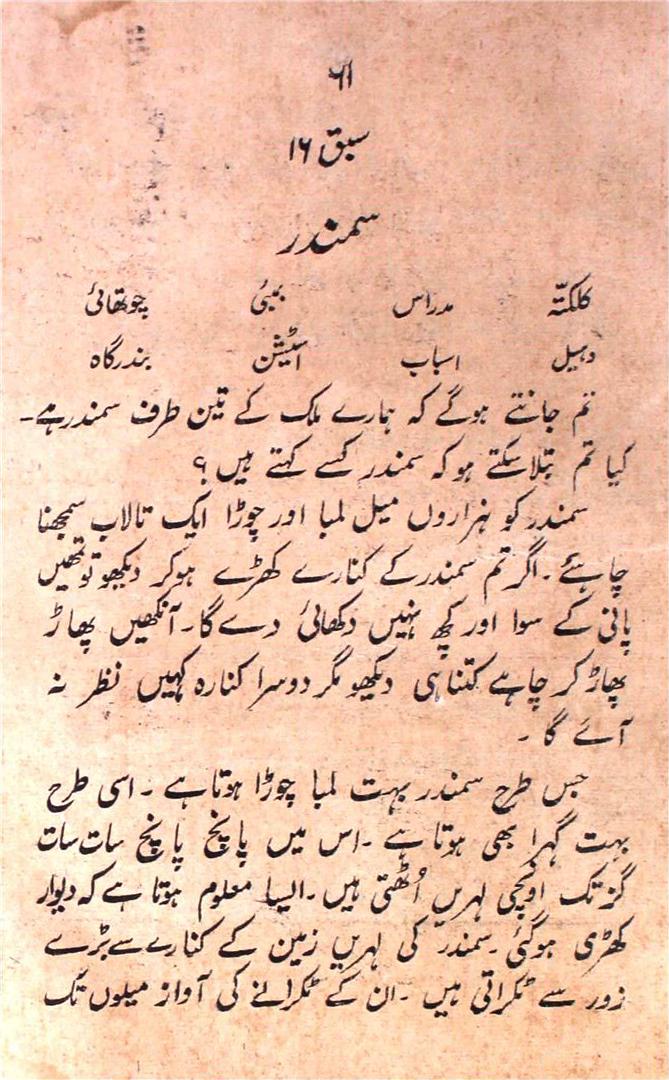 ۶۱
سبق ۱۶
سمندر
کلکتّہ مدراس بمبئی چوتھائی
وہیل اسباب اسٹیشن بندرگاہ
تم جانتے ہوگے کہ ہمارے ملک کے تین طرف سمندر ہے۔
کیا تم بتلا سکتے ہو کہ سمندر کسے کہتے ہیں؟
سمندر کو ہزاروں میل لمبا اور چوڑا ایک تالاب سمجھنا
چاہئے۔ اگر تم سمندر کے کنارے کھڑے ہوکر دیکھو تو تمھیں
پانی کے سوا اور کچھ نہیں دکھائی دے گا۔ آنکھیں پھاڑ
پھاڑ کر چاہے کتنا ہی دیکھو مگر دوسرا کنارہ کہیں نظر نہ
آئے گا۔
جس طرح سمندر بہت لمبا چوڑا ہوتا ہے۔ اسی طرح
بہت گہرا بھی ہوتا ہے۔ اس میں پانچ پانچ سات سات
گز تک اونچی لہریں اُٹھتی ہیں۔ ایسا معلوم ہوتا ہے کہ دیوار
کھڑی ہوگئی۔ سمندر کی لہریں زمین کے کنارے سے بڑے
زور سے ٹکراتی ہیں۔ ان کے ٹکرانے کی آواز میلوں تک